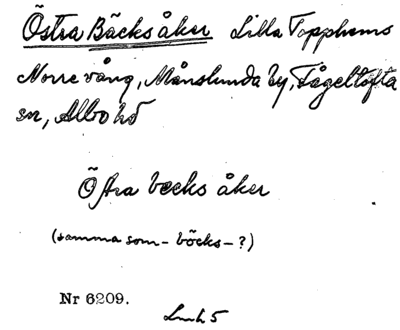 Östra Bäcks åker Lilla Topphems
Norrevång, Månslunda by, Fågeltofta
sn, Albo hd
Östra becks åker
(samma som - böcks - ?)
Nr 6209.
Lmh 5